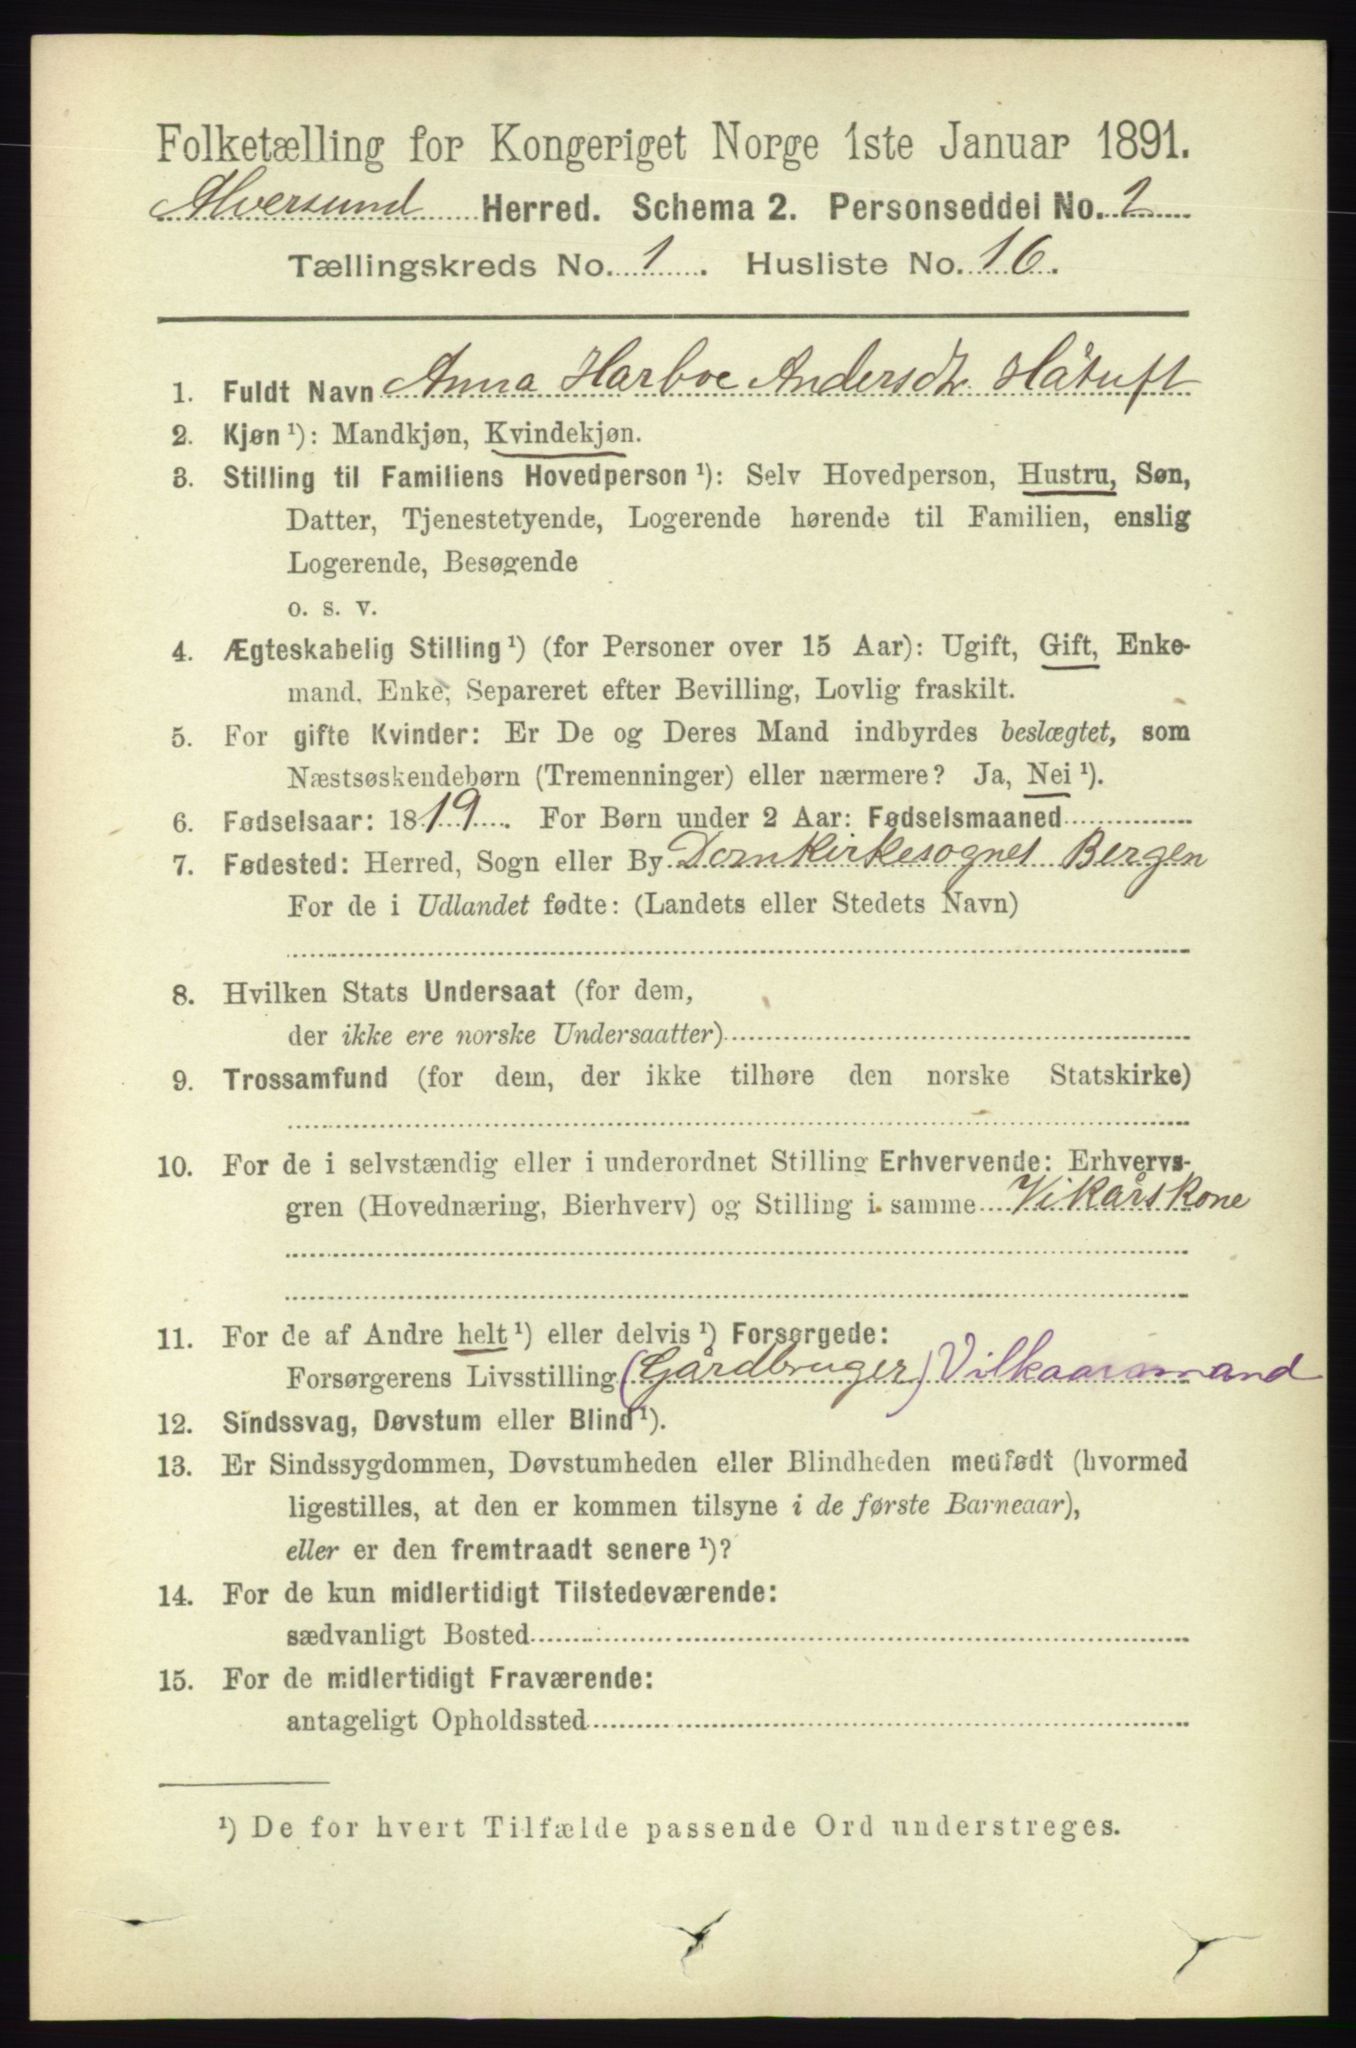 Folketælling for Kongeriget Norge 1ste Januar 1891.
Alversund Herred. Schema 2. Personseddel No. 2
Tællingskreds No. 1. Husliste No. 16.
1. Fuldt Navn Anna Harboe Andersdt. Håtuft
2. Kjøn ¹): Mandkjøn, Kvindekjøn.
3. Stilling til Familiens Hovedperson ¹): Selv Hovedperson, Hustru, Søn,
Datter, Tjenestetyende, Logerende hørende til Familien, enslig
Logerende, Besøgende
o. s. v.
4. Ægteskabelig Stilling ¹) (for Personer over 15 Aar): Ugift, Gift, Enke-
mand, Enke, Separeret efter Bevilling, Lovlig fraskilt.
5. For gifte Kvinder: Er De og Deres Mand indbyrdes beslægtet, som
Næstsøskendebørn (Tremenninger) eller nærmere? Ja, Nei ¹).
6. Fødselsaar: 1819. For Børn under 2 Aar: Fødselsmaaned
7. Fødested: Herred, Sogn eller By Domkirkesognet Bergen
For de i Udlandet fødte: (Landets eller Stedets Navn)
8. Hvilken Stats Undersaat (for dem,
der ikke ere norske Undersaatter)
9. Trossamfund (for dem, der ikke tilhøre den norske Statskirke)
10. For de i selvstændig eller i underordnet Stilling Erhvervende: Erhvervs-
gren (Hovednæring, Bierhverv) og Stilling i samme Vikårskone
11. For de af Andre helt ¹) eller delvis ¹) Forsørgede:
Forsørgerens Livsstilling (Gårdbruger) Vilkaarsmand
12. Sindssvag, Døvstum eller Blind ¹).
13. Er Sindssygdommen, Døvstumheden eller Blindheden medfødt (hvormed
ligestilles, at den er kommen tilsyne i de første Barneaar),
eller er den fremtraadt senere ¹)?
14. For de kun midlertidigt Tilstedeværende:
sædvanligt Bosted
15. For de midlertidigt Fraværende:
antageligt Opholdssted
¹) De for hvert Tilfælde passende Ord understreges.